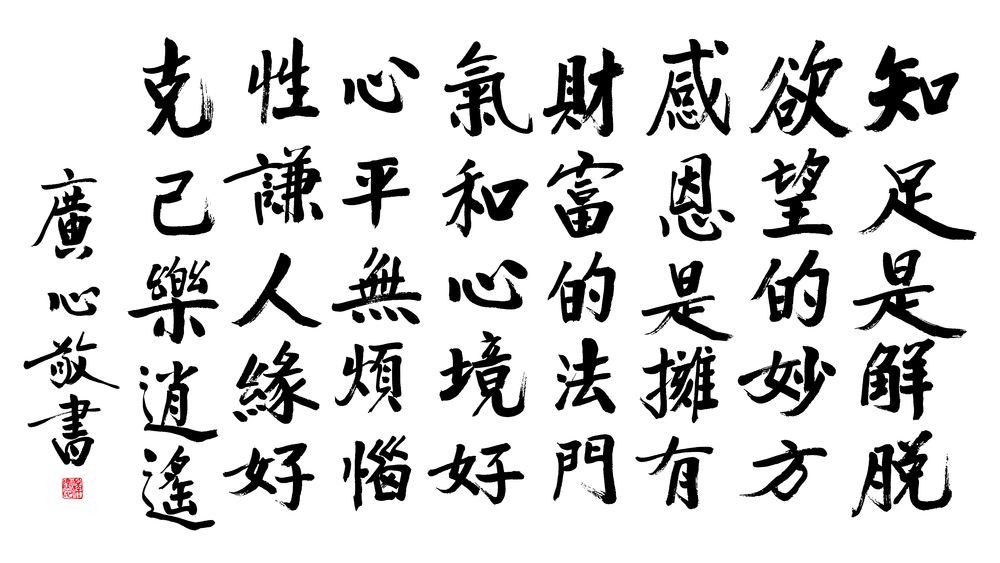 知足是解脫
欲望的妙方
感恩是擁有
財富的法門
氣和心境好
心平無煩惱
性謙人緣好
克己樂逍遙
廣心敬書